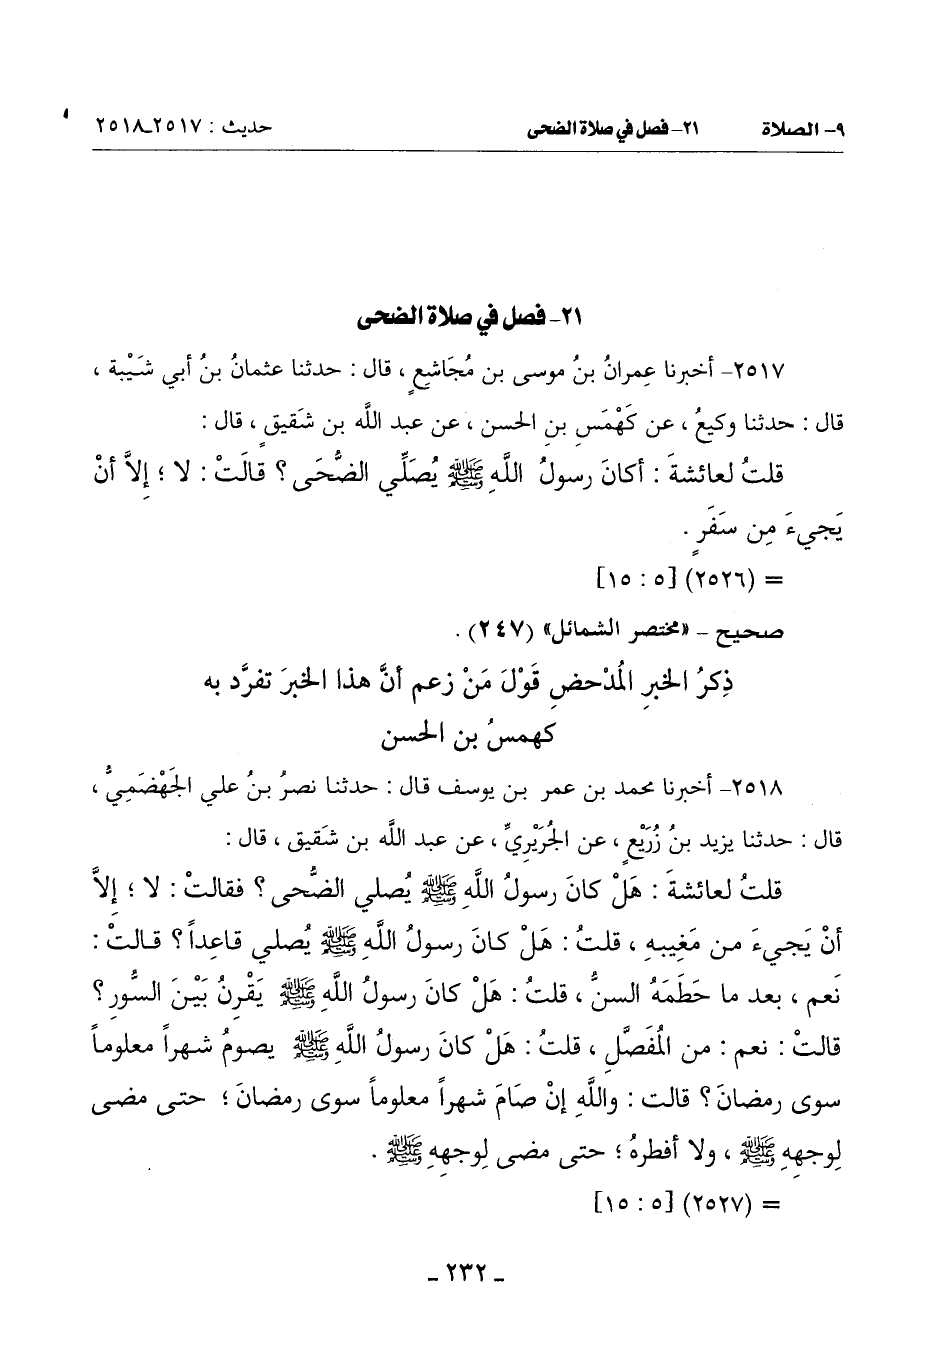 ٩- الصلاة ٢١- فصل في صلاة الضحى حديث : ٢٥١٧ـ٢٥١٨
٢١- فصل في صلاة الضحى
٢٥١٧- أخبرنا عِمرانُ بنُ موسى بن مُجَاشعٍ ، قال : حدثنا عثمانُ بنُ أبي شَيْبة ،
قال : حدثنا وكيعُ ، عن كَهْمَسِ بنِ الحسن ، عن عبد الله بن شَقيقٍ ، قال :
قلتُ لعائشةَ : أكانَ رسولُ اللَّهِ ﷺ يُصَلِّي الضُّحَى ؟ قالَتْ : لا ؛ إلاَّ أنْ
يَجيءَ مِن سَفَرٍ .
= (٢٥٢٦) [٥ : ١٥]
صحيح - «مختصر الشمائل» (٢٤٧) .
ذِكرُ الخبرِ المُدْحضِ قَوْلَ مَنْ زعم أنَّ هذا الخبرَ تفرَّد به
كهمسُ بن الحسن
٢٥١٨- أخبرنا محمد بن عمر بن يوسف قال : حدثنا نصرُ بنُ علي الجَهْضَمِيُّ ،
قال : حدثنا يزيد بنُ زُرَيْعٍ ، عن الجُرَيْرِيِّ ، عن عبد الله بن شَقيق ، قال :
قلتُ لعائشةَ : هَلْ كانَ رسولُ اللَّهِ ﷺ يُصلي الضُّحى ؟ فقالتْ : لا ؛ إلاَّ
أنْ يَجيءَ من مَغِيبهِ ، قلتُ : هَلْ كانَ رسولُ اللَّهِ ﷺ يُصلي قاعِداً ؟ قالتْ :
نَعم ، بعد ما حَطَمَهُ السنُّ ، قلتُ : هَلْ كانَ رسولُ اللَّهِ ﷺ يَقْرِنُ بَيْنَ السُّورِ ؟
قالتْ : نعم : من المُفَصَّلِ ، قلتُ : هَلْ كانَ رسولُ اللَّهِ ﷺ يصومُ شهراً معلوماً
سوى رمضانَ ؟ قالت : واللَّهِ إنْ صَامَ شهراً معلوماً سوى رمضانَ ؛ حتى مضى
لِوجههِ ﷺ ، ولا أفطرهُ ؛ حتى مضى لِوجههِ ﷺ .
= (٢٥٢٧) [٥ : ١٥]
- ٢٣٢ -